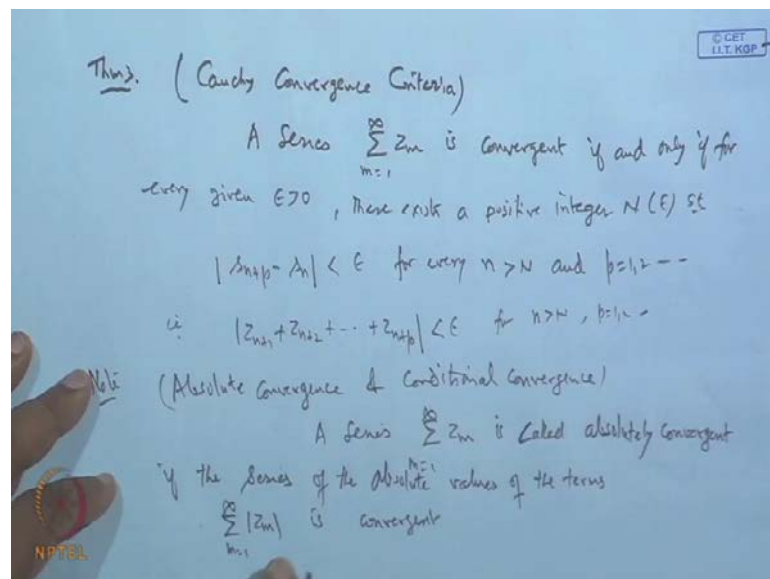 © CET
I.I.T. KGP
Thm3. (Cauchy Convergence Criteria)
A Series ∑_{m=1}^{∞} Zm is Convergent if and only if for
every given ϵ>0, there exists a positive integer N(ϵ) st
|Sn+p - Sn| < ϵ for every n > N and p=1,2 ---
ie |Zn+1 + Zn+2 + --- + Zn+p| < ϵ for n>N, p=1,2 -
Note (Absolute Convergence & Conditional Convergence)
A Series ∑_{m=1}^{∞} Zm is Called absolutely Convergent
if the Series of the absolute values of the terms
∑_{m=1}^{∞} |Zm| is convergent
NPTEL